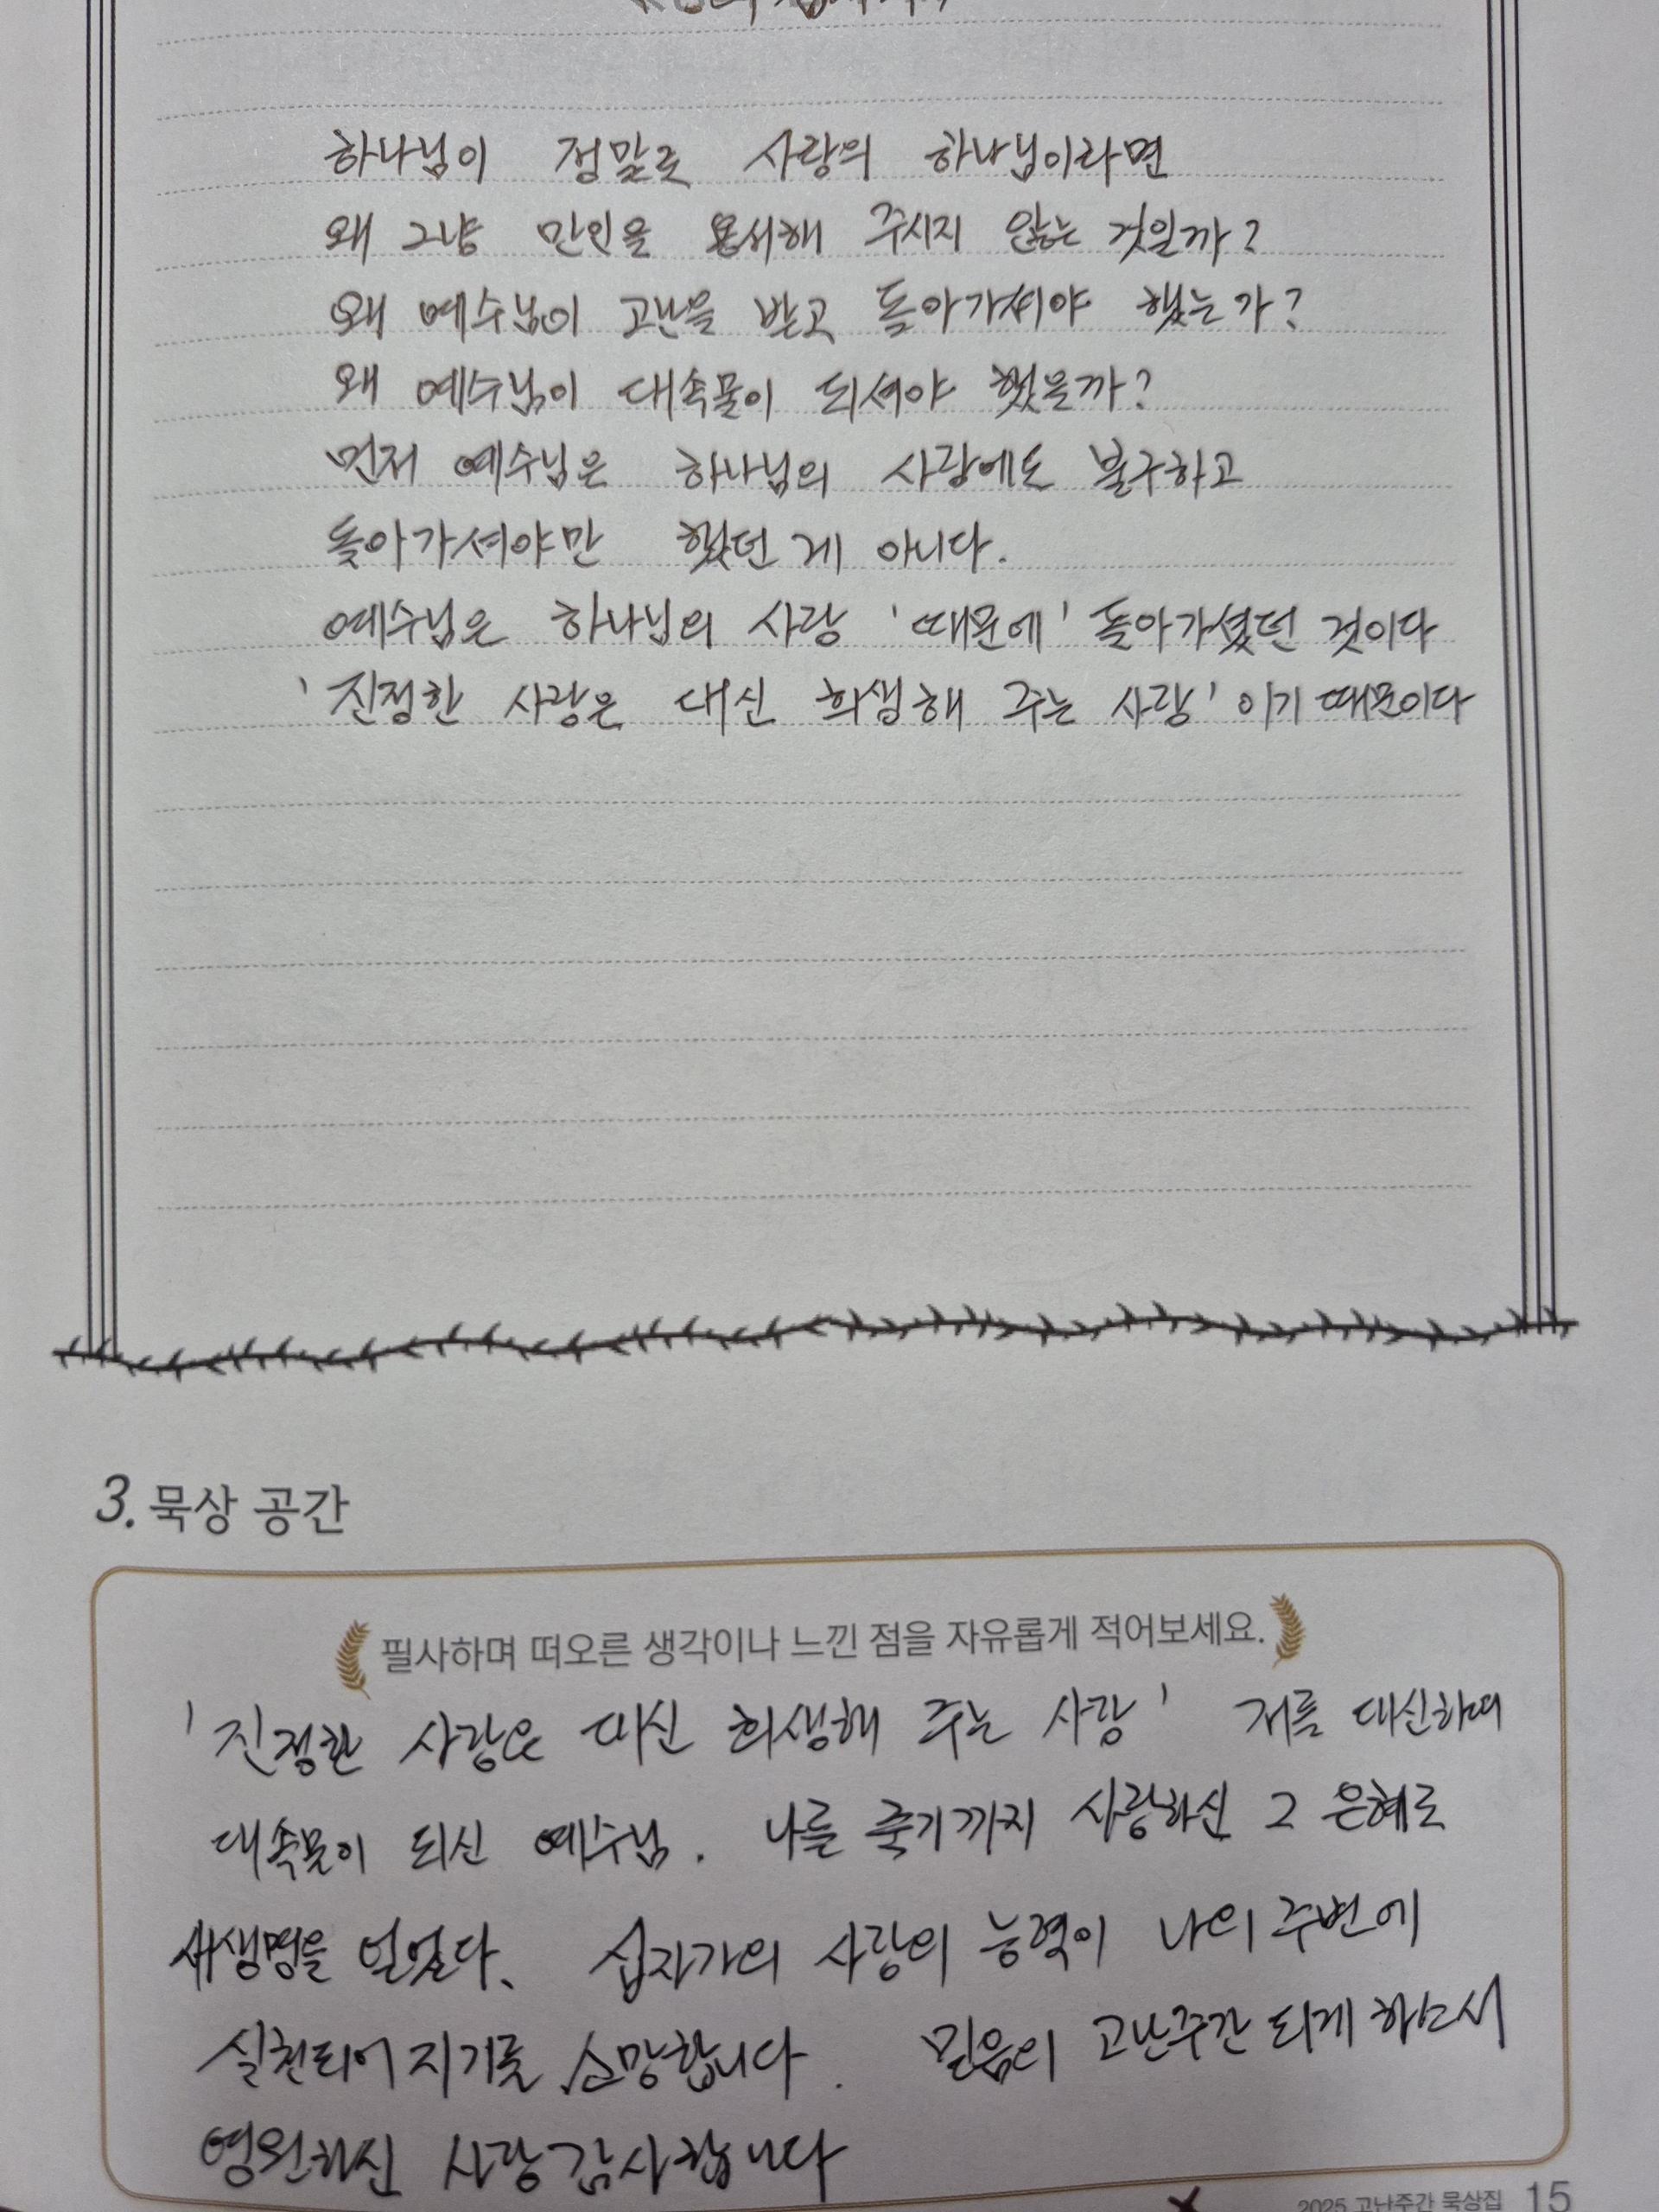 하나님이 정말로 사랑의 하나님이라면
왜 그냥 만인을 용서해 주시지 않는 것일까?
왜 예수님이 고난을 받고 돌아가셔야 했는가?
왜 예수님이 대속물이 되셔야 했을까?
먼저 예수님은 하나님의 사랑에도 불구하고
돌아가셔야만 했던 게 아니다.
예수님은 하나님의 사랑 '때문에' 돌아가셨던 것이다
'진정한 사랑은 대신 희생해 주는 사랑' 이기 때문이다
3. 묵상 공간
필사하며 떠오른 생각이나 느낀 점을 자유롭게 적어보세요.
'진정한 사랑은 대신 희생해 주는 사랑' 저를 대신하며
대속물이 되신 예수님. 나를 죽기까지 사랑하신 그 은혜로
새생명을 얻었다. 십자가의 사랑의 능력이 나의 주변에
실천되어 지기를 소망합니다. 믿음의 고난주간 되게 하소서
영원하신 사랑 감사합니다
2025 고난주간 묵상집 15